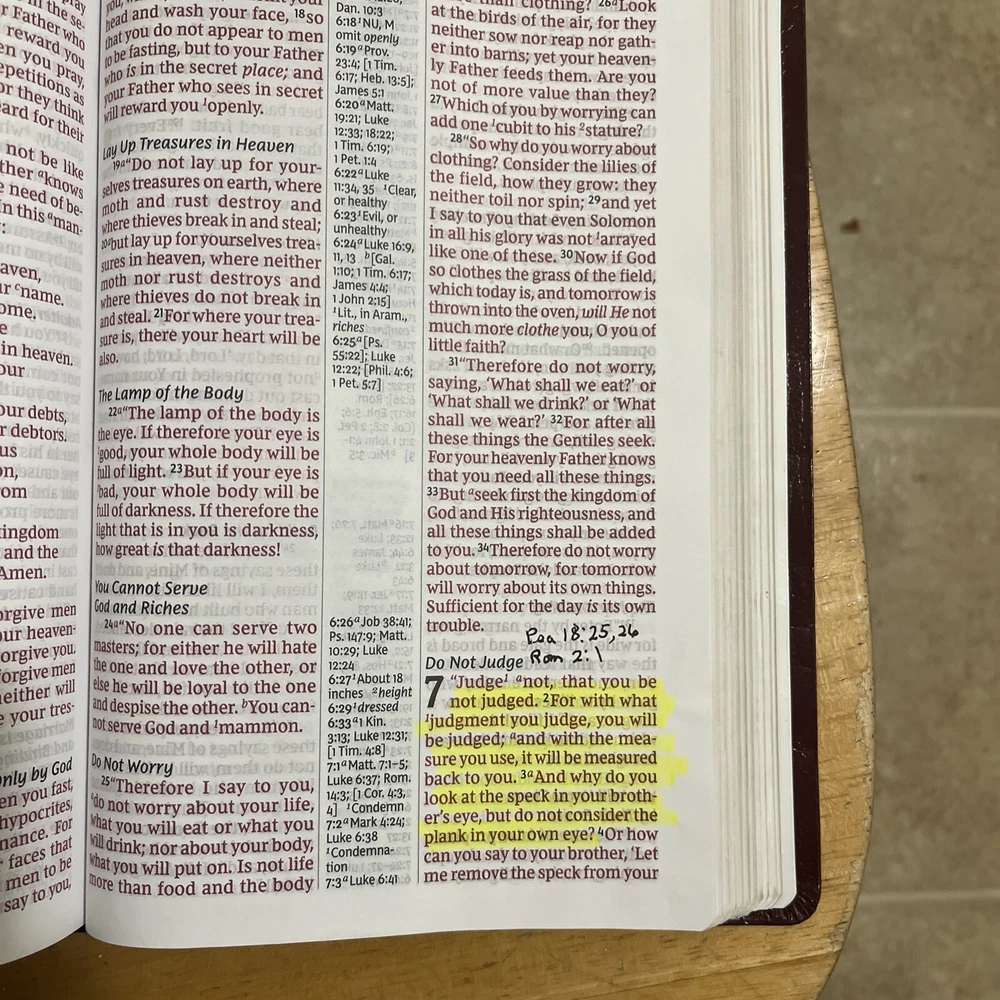 head and wash your face, 18so
that you do not appear to men
to be fasting, but to your Father
who is in the secret place; and
your Father who sees in secret
will reward you 1openly.
Lay Up Treasures in Heaven
19a“Do not lay up for your-
selves treasures on earth, where
moth and rust destroy and
where thieves break in and steal;
20abut lay up for yourselves trea-
sures in heaven, where neither
moth nor rust destroys and
where thieves do not break in
and steal. 21For where your trea-
sure is, there your heart will be
also.
The Lamp of the Body
22a“The lamp of the body is
the eye. If therefore your eye is
1good, your whole body will be
full of light. 23But if your eye is
1bad, your whole body will be
full of darkness. If therefore the
light that is in you is darkness,
how great is that darkness!
You Cannot Serve
God and Riches
24a“No one can serve two
masters; for either he will hate
the one and love the other, or
else he will be loyal to the one
and despise the other. bYou can-
not serve God and 1mammon.
Do Not Worry
25a“Therefore I say to you,
do not worry about your life,
what you will eat or what you
will drink; nor about your body,
what you will put on. Is not life
more than food and the body
Dan. 10:3
6:18 1NU, M
omit openly
6:19 a Prov.
23:4; [1 Tim.
6:17; Heb. 13:5];
James 5:1
6:20 a Matt.
19:21; Luke
12:33; 18:22;
1 Tim. 6:19;
1 Pet. 1:4
6:22 a Luke
11:34, 35 1Clear,
or healthy
6:23 1Evil, or
unhealthy
6:24 a Luke 16:9,
11, 13 b[Gal.
1:10; 1 Tim. 6:17;
James 4:4;
1 John 2:15]
1Lit., in Aram.,
riches
6:25 a [Ps.
55:22]; Luke
12:22; [Phil. 4:6;
1 Pet. 5:7]
6:26 a Job 38:41;
Ps. 147:9; Matt.
10:29; Luke
12:24
6:27 1About 18
inches 2height
6:29 1dressed
6:33 a 1 Kin.
3:13; Luke 12:31;
[1 Tim. 4:8]
7:1 a Matt. 7:1–5;
Luke 6:37; Rom.
14:3; [1 Cor. 4:3,
4] 1Condemn
7:2 a Mark 4:24;
Luke 6:38
1Condemna-
tion
7:3 a Luke 6:41
than clothing? 26a“Look
at the birds of the air, for they
neither sow nor reap nor gath-
er into barns; yet your heaven-
ly Father feeds them. Are you
not of more value than they?
27Which of you by worrying can
add one 1cubit to his 2stature?
28“So why do you worry about
clothing? Consider the lilies of
the field, how they grow: they
neither toil nor spin; 29and yet
I say to you that even Solomon
in all his glory was not 1arrayed
like one of these. 30Now if God
so clothes the grass of the field,
which today is, and tomorrow is
thrown into the oven, will He not
much more clothe you, O you of
little faith?
31“Therefore do not worry,
saying, ‘What shall we eat?’ or
‘What shall we drink?’ or ‘What
shall we wear?’ 32For after all
these things the Gentiles seek.
For your heavenly Father knows
that you need all these things.
33But aseek first the kingdom of
God and His righteousness, and
all these things shall be added
to you. 34Therefore do not worry
about tomorrow, for tomorrow
will worry about its own things.
Sufficient for the day is its own
trouble.
Psa 18:25,26
Rom 2:1
Do Not Judge
7 “Judge1 anot, that you be
not judged. 2For with what
1judgment you judge, you will
be judged; aand with the mea-
sure you use, it will be measured
back to you. 3aAnd why do you
look at the speck in your broth-
er’s eye, but do not consider the
plank in your own eye? 4Or how
can you say to your brother, ‘Let
me remove the speck from your